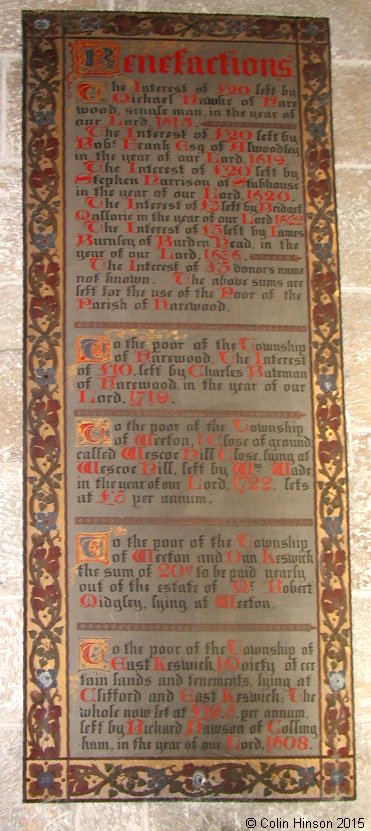 Benefactions.
The Interest of £20 left by
Michael Hawke of Hare
wood, single man, in the year of
our Lord, 1615.
The Interest of £20 left by
Robt. Frank Esq of Alwoodley
in the year of our Lord, 1619.
The Interest of £20 left by
Stephen Harrison of Stubhouse
in the year of our Lord, 1620.
The Interest of £5 left by Bridget
Mallorie in the year of our Lord 1622
The Interest of £5 left by James
Burnley of Burden Head, in the
year of our Lord, 1636.
The Interest of £3 donors name
not known. The above sums are
left for the use of the Poor of the
Parish of Harewood.
To the poor of the Township
of Harewood, The Interest
of £10, left by Charles Bateman
of Harewood, in the year of our
Lord, 1719.
To the poor of the Township
of Weeton, 1 Close of ground
called Wescoe Hill Close, lying at
Wescoe Hill, left by Wm. Wade
in the year of our Lord, 1722. lets
at per annum.
To the poor of the Township
of Weeton and Dun Keswick
the sum of 20s to be paid yearly
out of the estate of Mr. Robert
Midgley, lying at Weeton.
To the poor of the Township of
East Keswick 1 Moiety of cer
tain lands and tenements, lying at
Clifford and East Keswick: The
whole now let at per annum
left by Richard Dawson of Colling
ham, in the year of our Lord, 1608.
© Colin Hinson 2015